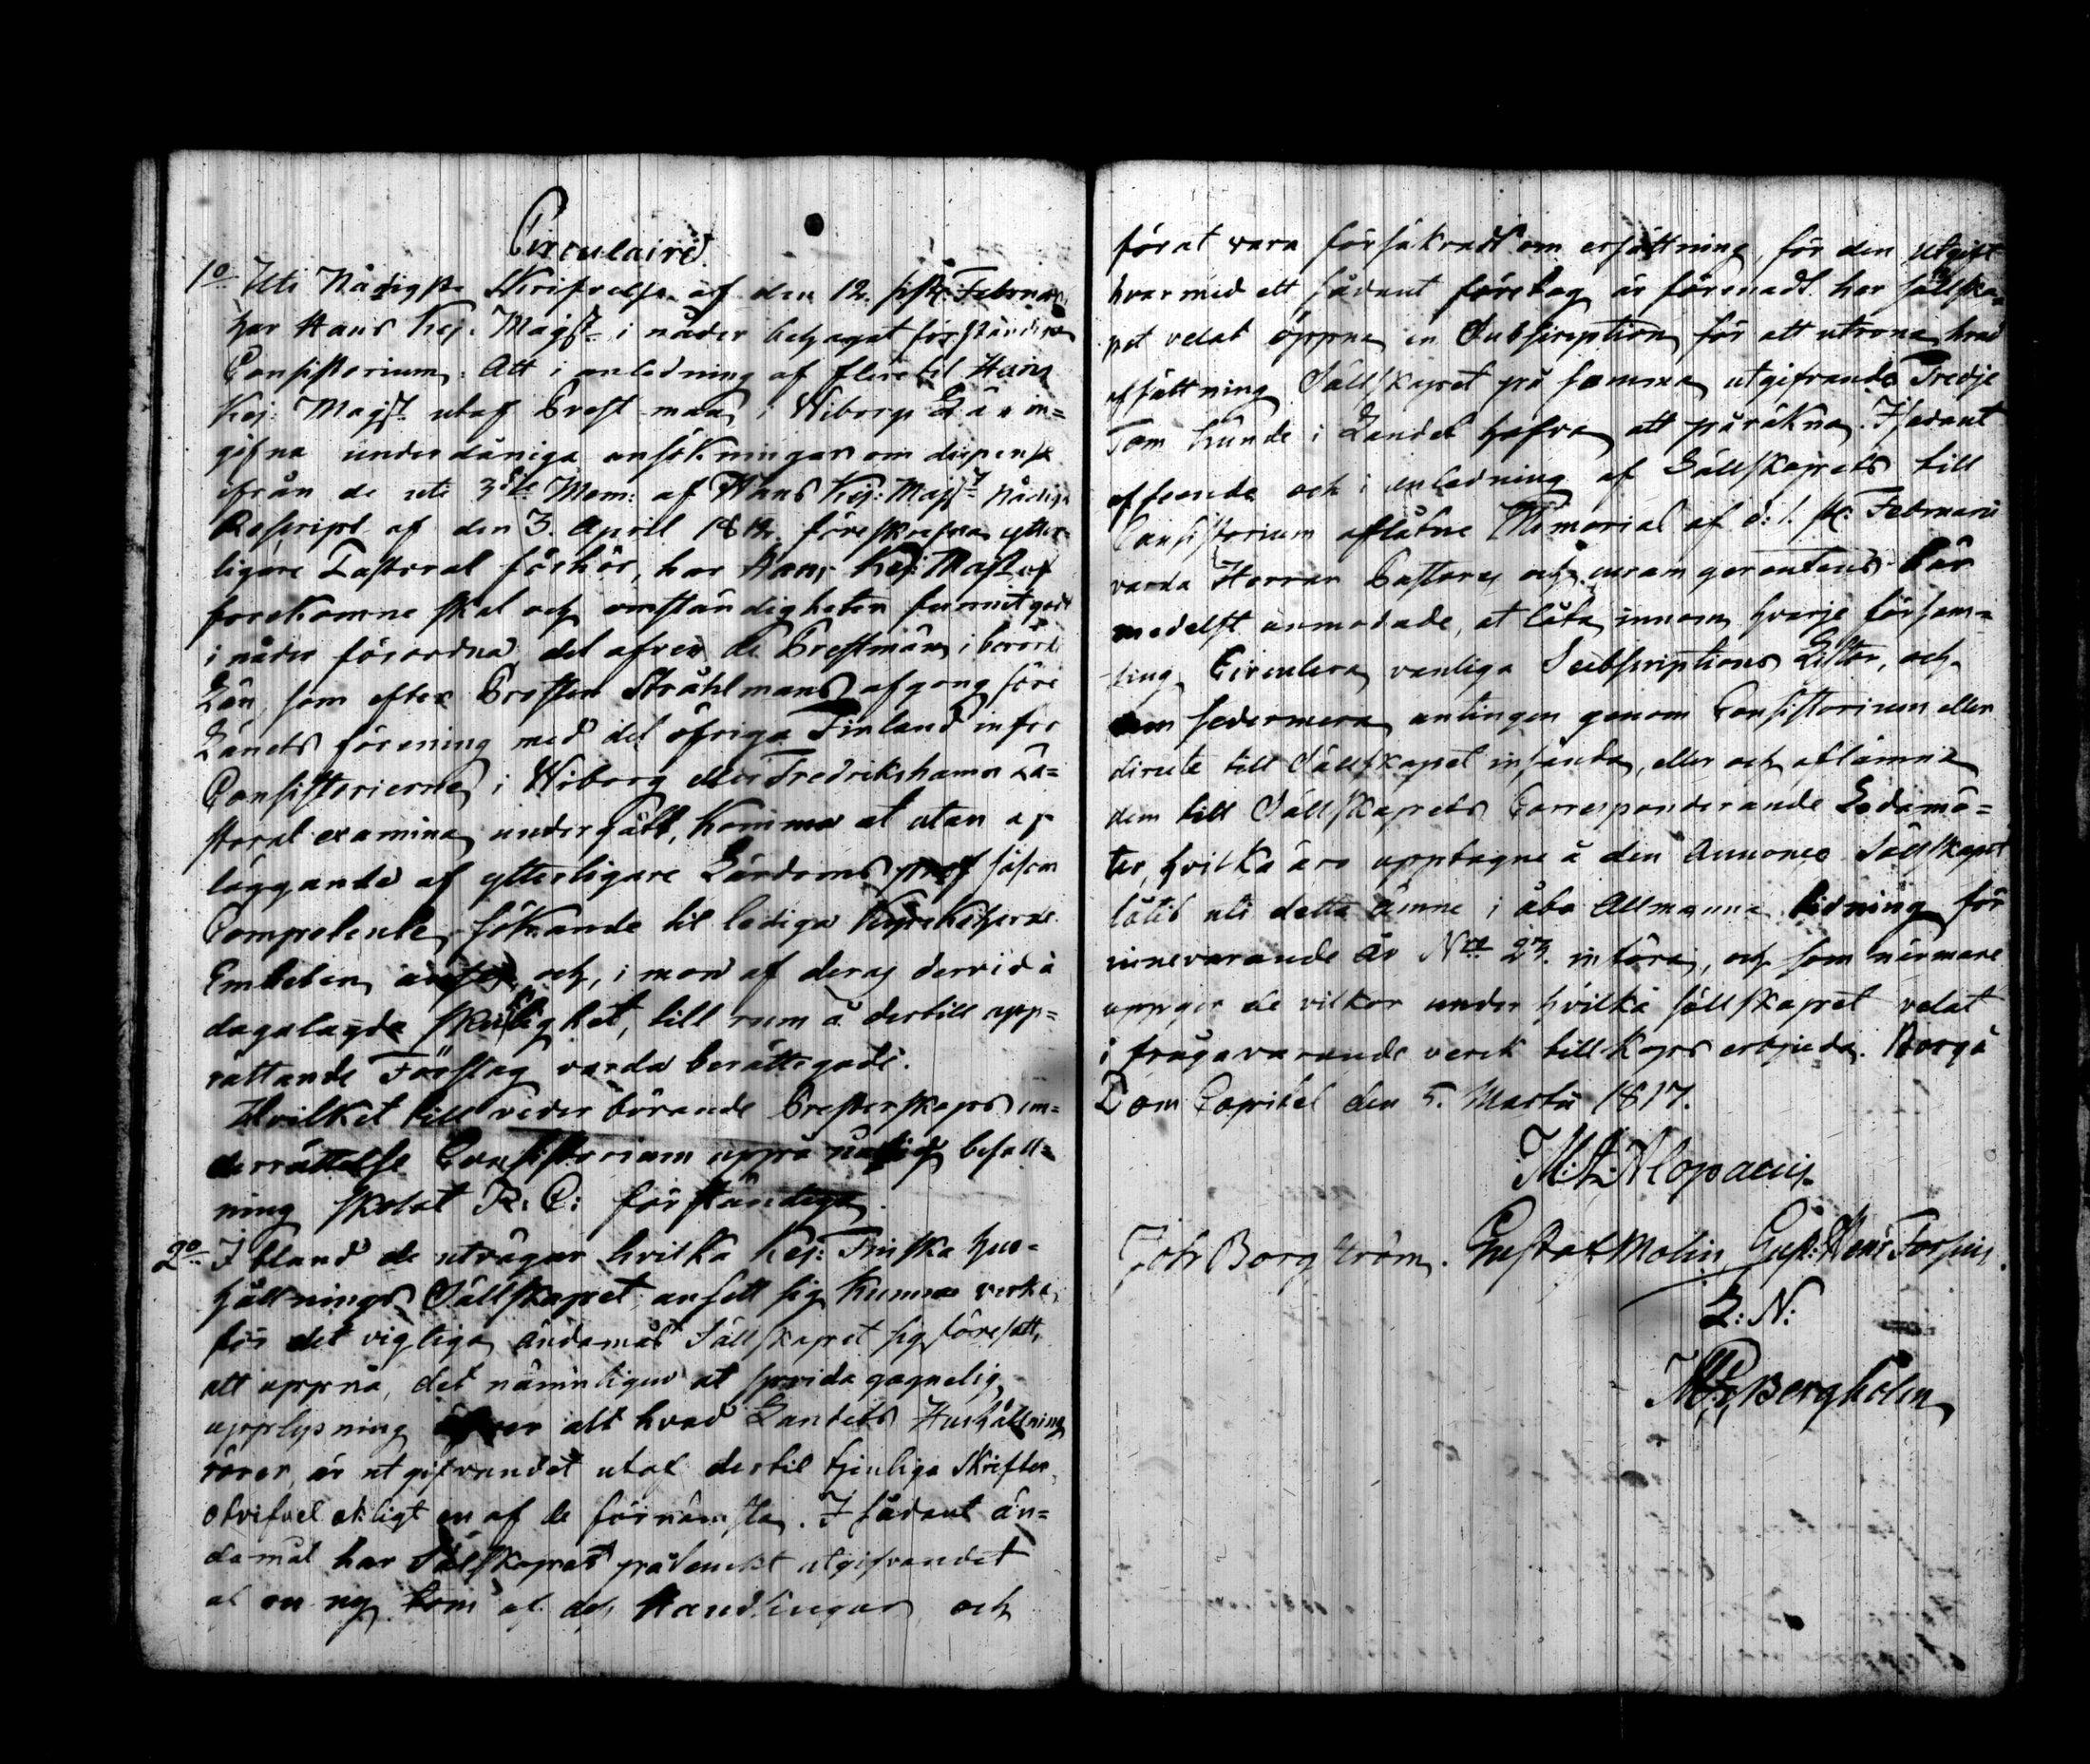 Circulaire
1o Uti Nådigste Skrifvelse af den 12. sistl: Februarii
har Hans Kej: Majst: i nåder behagat förständiga
Consistorium: Att i anledning af flere til Hans
Kej: Majst: utaf Prest män i Wiborgs Län in=
gifna underdåniga ansökningar om dispense
ifrån de uti 3die Mom: af Hans Kej: Majst: Nådiga
Rescript af den 3. April 1812. föreskrefna ytter=
ligare Pastoral förhör, har Hans Kej: Majst: af
förekomne skäl och omständigheter funnit godt
i nåder förordna det afven de Prestmän i berörde
Län, som efter Prosten Stråhlmans afgang före
Länets förening med det öfriga Finland inför
Consistorierne i Wiborg eller Fredrikshamn Pa=
storal examina undergått, komma at utan af
läggande af ytterligare Lärdoms prof såsom
Competente sökande til lediga Kyrkoherde
Embeten och, i mon af deras dervid å
dagalagde skicklighet, till rum å dertill upp=
rättande Förslag varda berättigade.
Hvilket till vederbörande Presterskaps un=
derrättelse Consistorium uppå nådig befall=
ning skolat R: C: förständiga.
2o Ibland de utvägar hvilka Kej: Finska Hus=
hållnings Sällskapet ansett sig kunna verka
för det vigtiga ändamål Sällskapet sig föresatt,
att uppnå, det nämligen at sprida gagnelig
upplysning öfver alt hvad Landets Hushållning
rörer, är utgifvandet utaf dertil tjenliga Skrifter
otvifvelaktigt en af de förnämsta. I sådant än=
damål har Sällskapet påtänckt utgifvandet
af en ny tom af dess Handlingar och
för at vara försäkradt om ersättning för den utgift
hvarmed ett sådant företag är förenadt har sällska=
pet velat öppna en Subscription för att utröna hvad
afsättning Sällskapet på samma utgifvande Tredje
Tom kunde i Landet hafva att påräkna. I sådant
afseende och i anledning af Sällskapets till
Consistorium aflåtne Memorial af d: 1. sl: Februarii
varda Herrar Pastores och curam gerentens här
medelst anmodade, at låta innom hvarje försam=
ling Circulera vanliga Subscriptions Listor, och
dem sedermera antingen genom Consistorium eller
directe till Sällskapet insända, eller och aflämna
dem till Sällskapets Corresponderande Ledamö=
ter, hvilka äro upptagne å den Annonce Sällskapet
låtit uti detta ämne i Åbo Allmänna tidning för
innevarande År Nro 23. införa, och som närmare
uppger de vilkor under hvilka sällskapet velat
i frågavarande verck till köps erbjuda. Borgå
Dom Capitel den 5. Martii 1817.
M: A: Alopaeus.
Joh: Borgström. Gustaf Molin Gust: Henr: Forsius.
L: N:
Bergholm